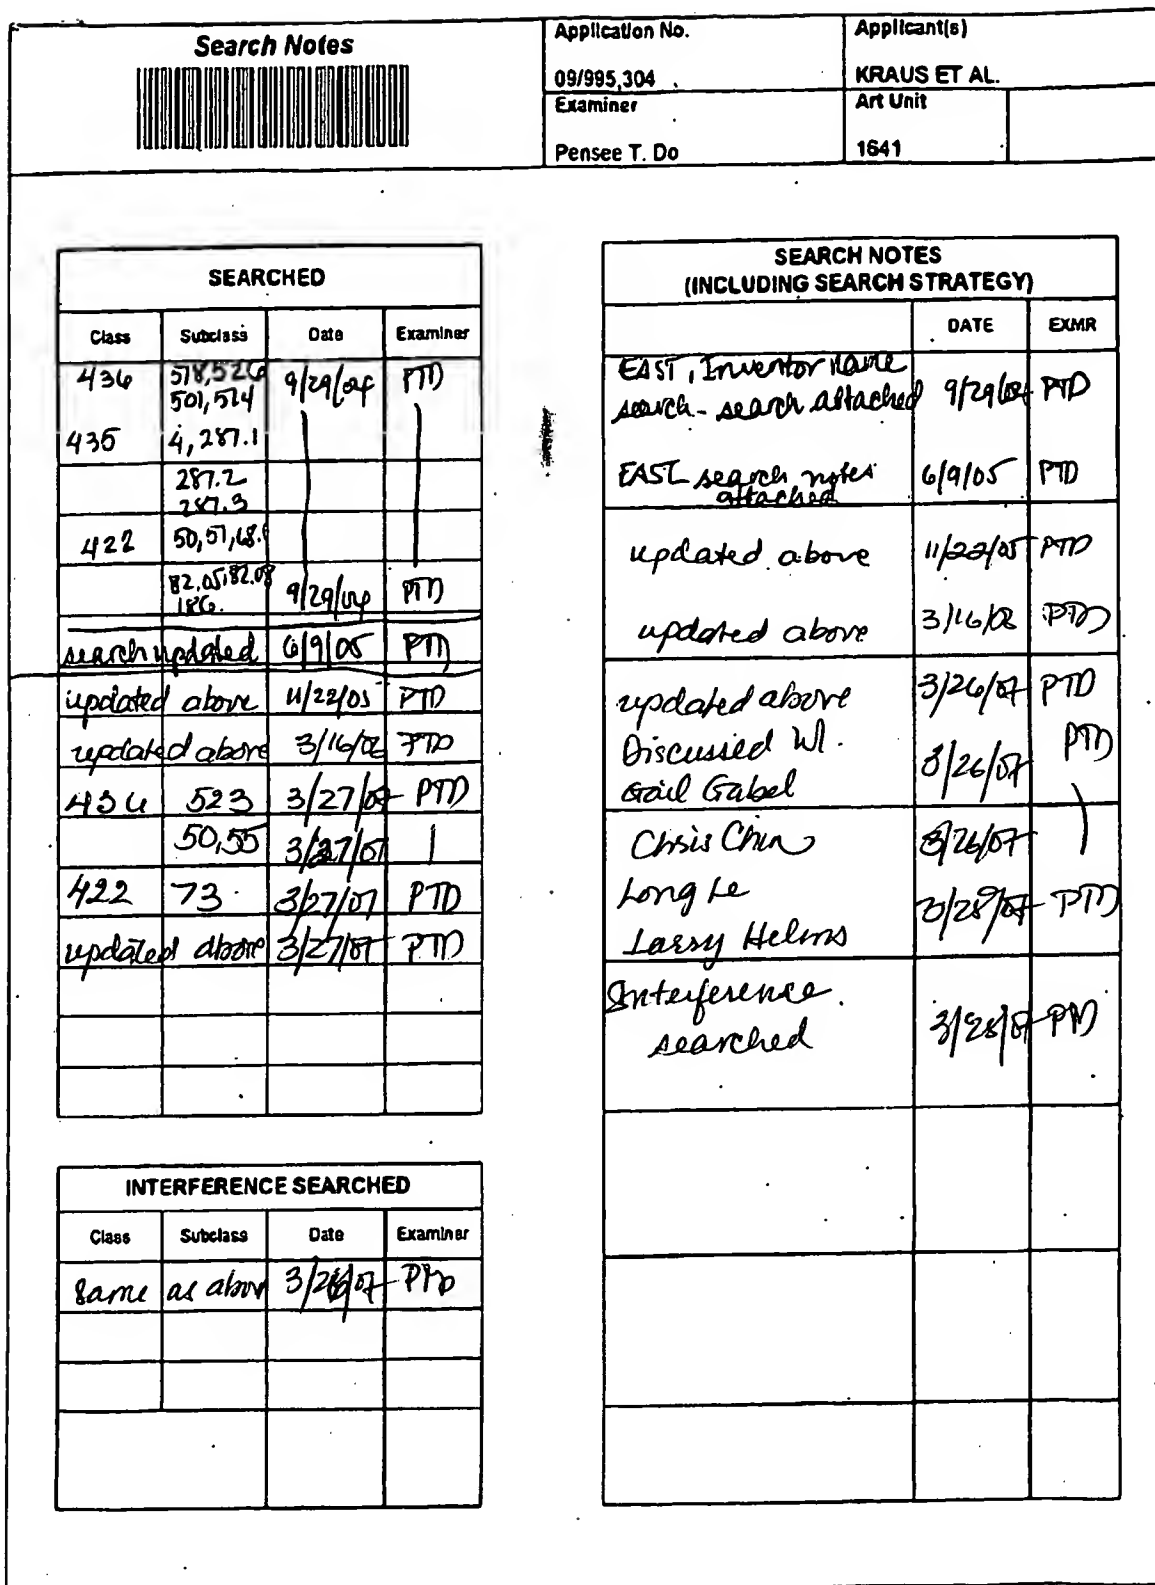 Search Notes
Application No.
09/995,304
Applicant(s)
KRAUS ET AL.
Examiner
Pensee T. Do
Art Unit
1641
SEARCHED
Class Subclass Date Examiner
436 518,526 9/29/04 PTD
501,514
435 4, 287.1
287.2
287.3
422 50,57,68.1
82.05,82.08 9/29/04 PTD
186.
search updated 6/9/05 PTD
updated above 11/22/05 PTD
updated above 3/16/06 PTD
436 523 3/27/07 PTD
50,55 3/27/07
422 73 3/27/07 PTD
updated above 3/27/07 PTD
INTERFERENCE SEARCHED
Class Subclass Date Examiner
Same as above 3/28/07 PTD
SEARCH NOTES
(INCLUDING SEARCH STRATEGY)
DATE EXMR
EAST, Inventor name
search - search attached 9/29/04 PTD
EAST search notes 6/9/05 PTD
attached
updated above 11/22/05 PTD
updated above 3/16/06 PTD
updated above 3/26/07 PTD
Discussed w/. PTD
Gail Gabel 3/26/07
Chris Chin 3/26/07
Long Le 3/28/07 PTD
Larry Helms
Interference
searched 3/28/07 PTD